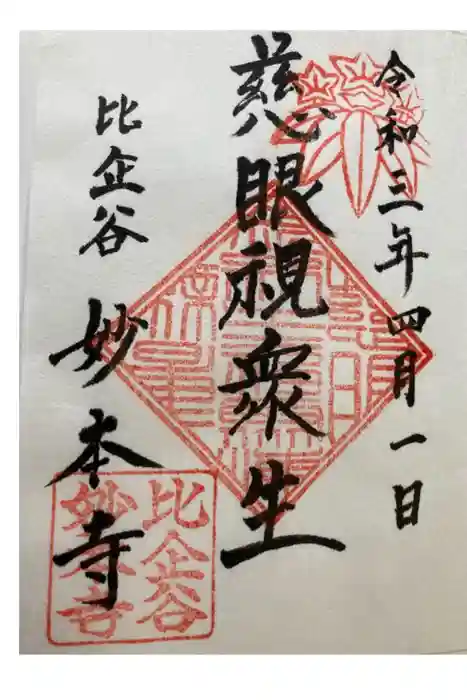 令和三年四月一日
慈眼視衆生
比企谷
妙本寺
比企谷
妙本寺